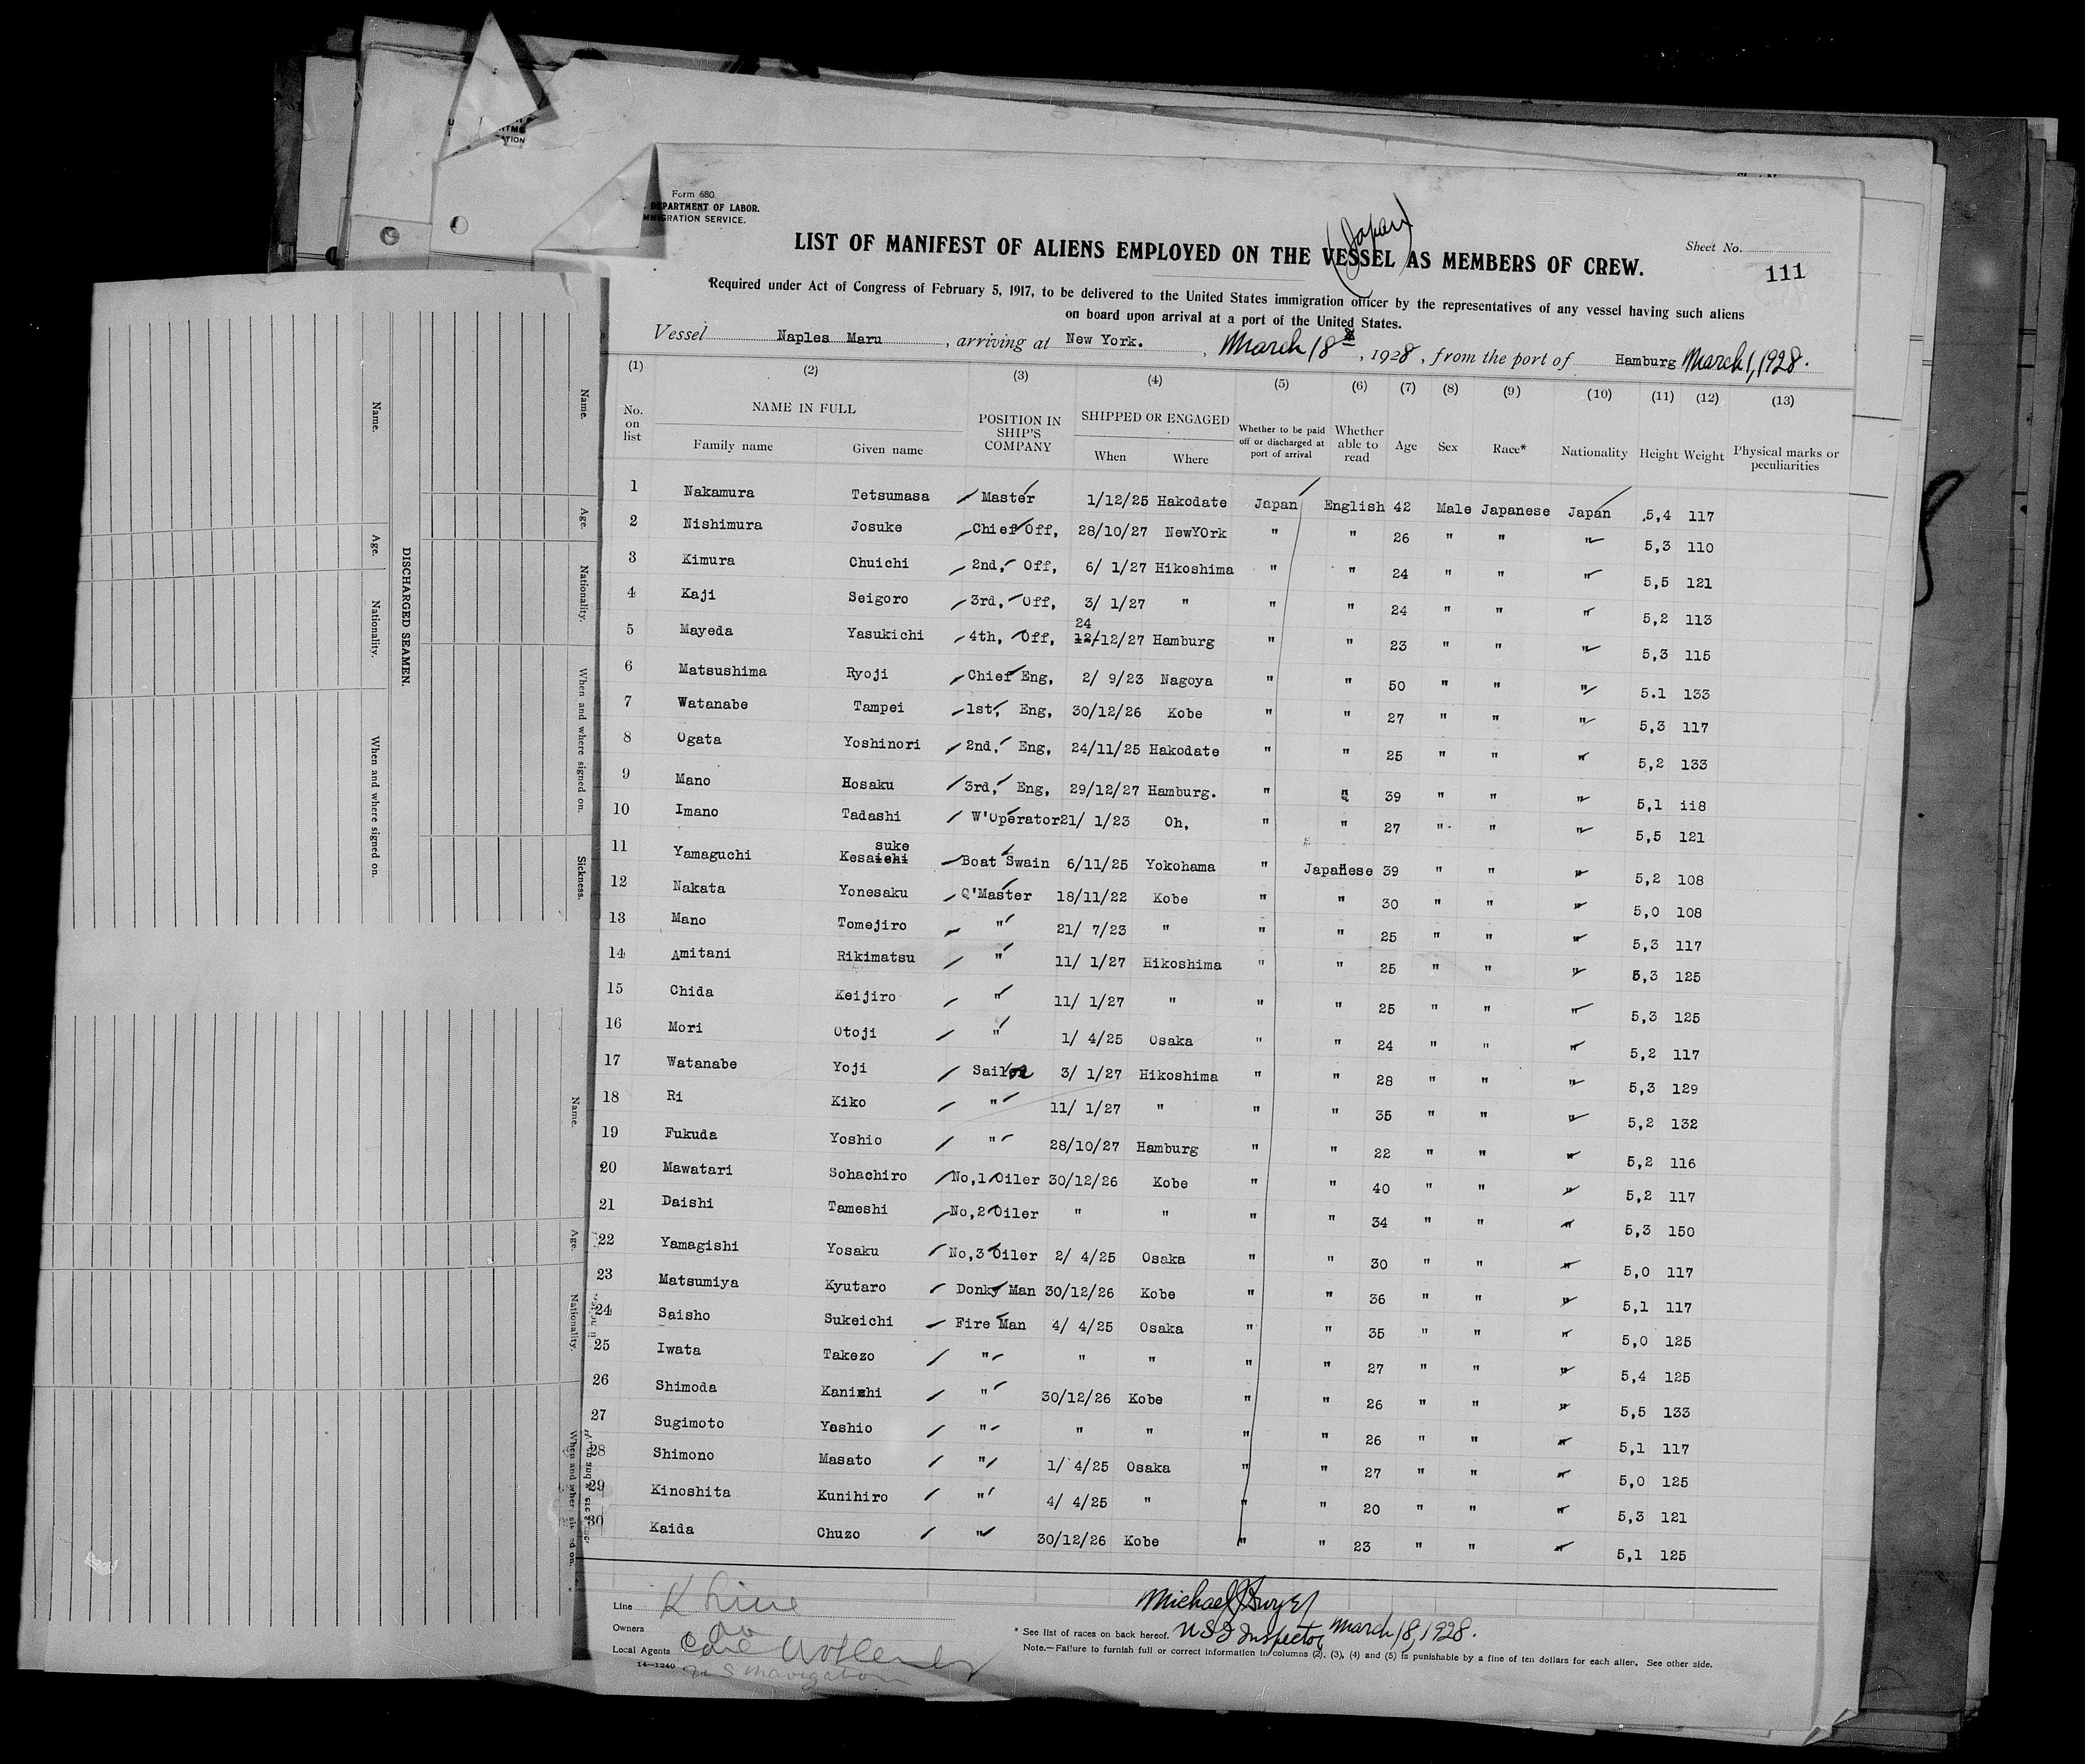 Form 680
DEPARTMENT OF LABOR.
IMMIGRATION SERVICE.
(Japan)
LIST OF MANIFEST OF ALIENS EMPLOYED ON THE VESSEL AS MEMBERS OF CREW.
Sheet No.
111
Required under Act of Congress of February 5, 1917, to be delivered to the United States immigration officer by the representatives of any vessel having such aliens
on board upon arrival at a port of the United States.
Vessel Naples Maru, arriving at New York., March 18, 1928, from the port of Hamburg March 1, 1928.
(1) (2) (3) (4) (5) (6) (7) (8) (9) (10) (11) (12) (13)
No. on list NAME IN FULL Family name Given name POSITION IN SHIP'S COMPANY SHIPPED OR ENGAGED When Where Whether to be paid off or discharged at port of arrival Whether able to read Age Sex Race* Nationality Height Weight Physical marks or peculiarities
1 Nakamura Tetsumasa Master 1/12/25 Hakodate Japan English 42 Male Japanese Japan 5,4 117
2 Nishimura Josuke Chief Off, 28/10/27 NewYOrk " " 26 " " " 5,3 110
3 Kimura Chuichi 2nd, Off, 6/ 1/27 Hikoshima " " 24 " " " 5,5 121
4 Kaji Seigoro 3rd, Off, 3/ 1/27 " " " 24 " " " 5,2 113
24
5 Mayeda Yasukichi 4th, Off, 12/12/27 Hamburg " " 23 " " " 5,3 115
6 Matsushima Ryoji Chief Eng, 2/ 9/23 Nagoya " " 50 " " " 5.1 133
7 Watanabe Tampei 1st, Eng, 30/12/26 Kobe " " 27 " " " 5,3 117
8 Ogata Yoshinori 2nd, Eng, 24/11/25 Hakodate " " 25 " " " 5,2 133
9 Mano Hosaku 3rd, Eng, 29/12/27 Hamburg. " " 39 " " " 5,1 118
10 Imano Tadashi W'Operator 21/ 1/23 Oh, " " 27 " " " 5,5 121
suke
11 Yamaguchi Kesaichi Boat Swain 6/11/25 Yokohama " Japanese 39 " " " 5,2 108
12 Nakata Yonesaku Q'Master 18/11/22 Kobe " " 30 " " " 5,0 108
13 Mano Tomejiro " 21/ 7/23 " " " 25 " " " 5,3 117
14 Amitani Rikimatsu " 11/ 1/27 Hikoshima " " 25 " " " 5,3 125
15 Chida Keijiro " 11/ 1/27 " " " 25 " " " 5,3 125
16 Mori Otoji " 1/ 4/25 Osaka " " 24 " " " 5,2 117
17 Watanabe Yoji Sailor 3/ 1/27 Hikoshima " " 28 " " " 5,3 129
18 Ri Kiko " 11/ 1/27 " " " 35 " " " 5,2 132
19 Fukuda Yoshio " 28/10/27 Hamburg " " 22 " " " 5,2 116
20 Mawatari Sohachiro No,1 Oiler 30/12/26 Kobe " " 40 " " " 5,2 117
21 Daishi Tameshi No,2 Oiler " " " " 34 " " " 5,3 150
22 Yamagishi Yosaku No,3 Oiler 2/ 4/25 Osaka " " 30 " " " 5,0 117
23 Matsumiya Kyutaro Donky Man 30/12/26 Kobe " " 36 " " " 5,1 117
24 Saisho Sukeichi Fire Man 4/ 4/25 Osaka " " 35 " " " 5,0 125
25 Iwata Takezo " " " " " 27 " " " 5,4 125
26 Shimoda Kanichi " 30/12/26 Kobe " " 26 " " " 5,5 133
27 Sugimoto Yoshio " " " " " 26 " " " 5,1 117
28 Shimono Masato " 1/ 4/25 Osaka " " 27 " " " 5,0 125
29 Kinoshita Kunihiro " 4/ 4/25 " " " 20 " " " 5,3 121
30 Kaida Chuzo " 30/12/26 Kobe " " 23 " " " 5,1 125
Line K Line
Owners do
Local Agents
U S Navigation
14—1240
Michael J Dwyer
* See list of races on back hereof. U S I Inspector March 18, 1928.
Note.—Failure to furnish full or correct information in columns (2), (3), (4) and (5) is punishable by a fine of ten dollars for each alien. See other side.
DISCHARGED SEAMEN.
Name. Age. Nationality. When and where signed on.
Name. Age. Nationality. When and where signed on. Sickness.
Name. Age. Nationality. When and where signed on.